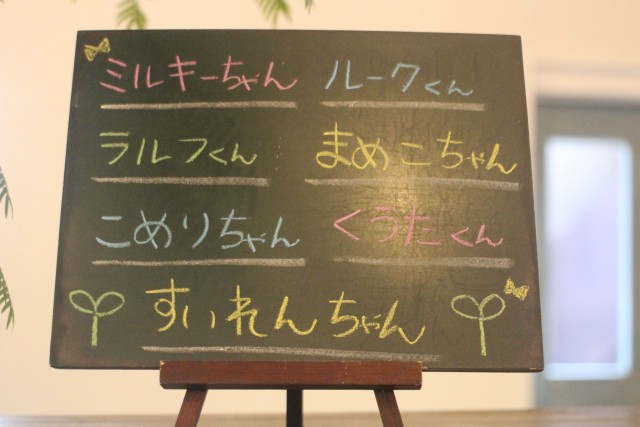 ミルキーちゃん ルークくん
ラルフくん まめこちゃん
こめりちゃん くうたくん
すいれんちゃん